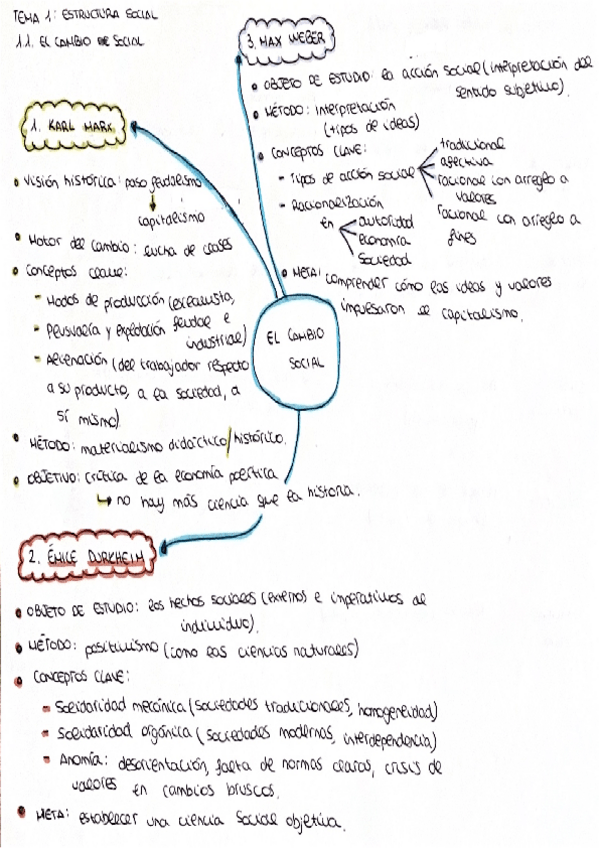 TEMA 1: ESTRUCTURA SOCIAL
1.1. EL CAMBIO DE SOCIAL
3. MAX WEBER
• OBJETO DE ESTUDIO: la acción social (interpretación del
sentido subjetivo).
• MÉTODO: Interpretación
(tipos de ideas)
• CONCEPTOS CLAVE:
- Tipos de acción social
tradicional
afectiva
racional con arreglo a
valores
racional con arreglo a
fines
- Racionalización
en
autoridad
economía
Sociedad
• META: comprender cómo las ideas y valores
impulsaron el capitalismo.
1. KARL MARX
• Visión histórica: paso feudalismo
capitalismo
• Motor del cambio: lucha de clases
• Conceptos clave:
- Modos de producción (esclavista,
feudal e
industrial)
- Plusvalía y explotación
- Alienación (del trabajador respecto
a su producto, a la sociedad, a
sí mismo).
• MÉTODO: materialismo didáctico/histórico.
• OBJETIVO: crítica de la economía política
no hay más ciencia que la historia.
EL CAMBIO
SOCIAL
2. ÉMILE DURKHEIM
• OBJETO DE ESTUDIO: los hechos sociales (externos) e imperativos al
individuo).
• MÉTODO: positivismo (como las ciencias naturales)
• CONCEPTOS CLAVE:
- Solidaridad mecánica (sociedades tradicionales, homogeneidad)
- Solidaridad orgánica (sociedades modernas, interdependencia)
- Anomía: desorientación, falta de normas claras, crisis de
valores en cambios bruscos.
• META: establecer una ciencia social objetiva.